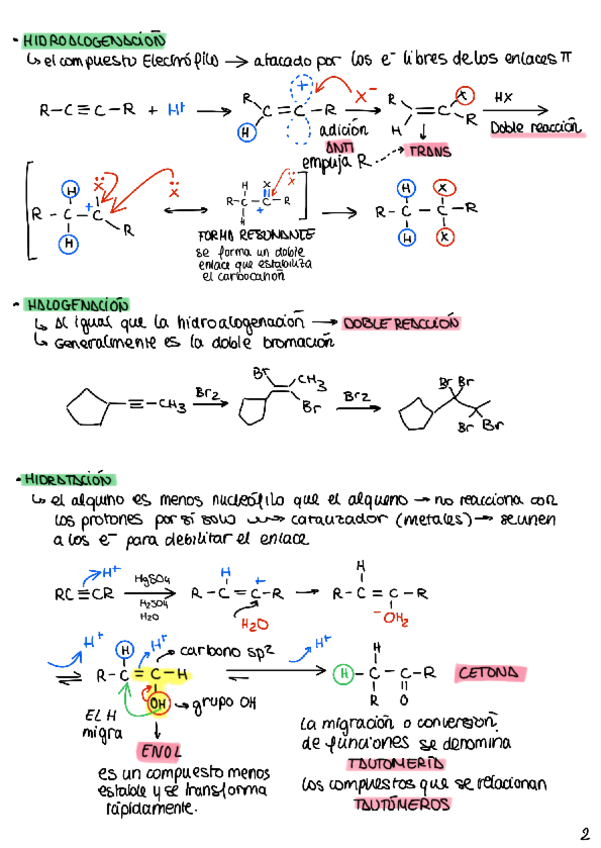 - HIDROALOGENACIÓN
↳ el compuesto Electrófilo → atacado por los e⁻ libres de los enlaces π
R-C≡C-R + H⁺ → R C=C R H + X⁻ → R C=C X H R HX →
adición ANTI
empuja R
TRANS
Doble reacción
R-C-C-R H H + X X ↔ R-C-C-R H H X + X → R-C-C-R H H X X
FORMA RESONANTE
se forma un doble
enlace que estabiliza
el carbocatión
- HALOGENACIÓN
↳ Al igual que la hidroalogenación → DOBLE REACCIÓN
↳ Generalmente es la doble bromación
≡-CH₃ Br₂ → Br CH₃ Br Br₂ → Br Br Br Br
- HIDRATACIÓN
↳ el alquino es menos nucleófilo que el alqueno → no reacciona con
los protones por sí solo → catalizador (metales) → se unen
a los e⁻ para debilitar el enlace
RC≡CR H⁺ HgSO₄ H₂SO₄ H₂O → R-C=C-R H + H₂O → R-C=C-R H ⁻OH₂
H⁺ ⇌ R-C=C-H H OH H⁺ → carbono sp² ⇌ H⁺ H-C-C-R H R O CETONA
→ grupo OH
EL H
migra
ENOL
es un compuesto menos
estable y se transforma
rápidamente.
La migración o conversión
de funciones se denomina
TAUTOMERÍA
Los compuestos que se relacionan
TAUTÓMEROS
2